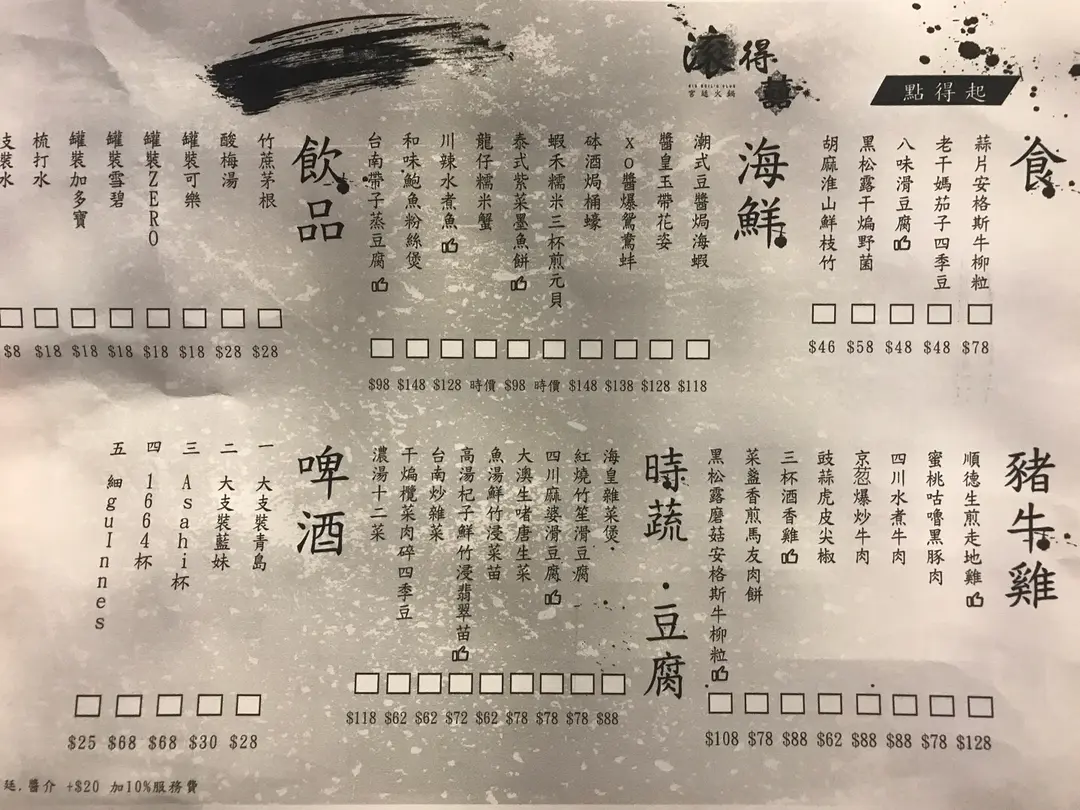 滾得囍
宮廷火鍋
點得起
食
蒜片安格斯牛柳粒
老干媽茄子四季豆
八味滑豆腐
黑松露干煸野菌
胡麻淮山鮮枝竹
$46 $58 $48 $48 $78
海鮮
潮式豆醬焗海蝦
醬皇玉帶花姿
XO醬爆鴛鴦蚌
砵酒焗桶蠔
蝦禾糯米三杯煎元貝
泰式紫菜墨魚餅
龍仔糯米蟹
川辣水煮魚
和味鮑魚粉絲煲
台南帶子蒸豆腐
$98 $148 $128 時價 $98 時價 $148 $138 $128 $118
飲品
竹蔗茅根
酸梅湯
罐裝可樂
罐裝ZERO
罐裝雪碧
罐裝加多寶
梳打水
支裝水
$8 $18 $18 $18 $18 $18 $28 $28
豬牛雞
順德生煎走地雞
蜜桃咕嚕黑豚肉
四川水煮牛肉
京葱爆炒牛肉
豉蒜虎皮尖椒
三杯酒香雞
菜盞香煎馬友肉餅
黑松露磨菇安格斯牛柳粒
$108 $78 $88 $62 $88 $88 $78 $128
時蔬・豆腐
海皇雜菜煲
紅燒竹笙滑豆腐
四川麻婆滑豆腐
大澳生啫唐生菜
魚湯鮮竹浸菜苗
高湯杞子鮮竹浸翡翠苗
台南炒雜菜
干煸欖菜肉碎四季豆
濃湯十二菜
$118 $62 $62 $72 $62 $78 $78 $78 $88
啤酒
一 大支裝青島
二 大支裝藍妹
三 Asahi杯
四 1664杯
五 細guInnes
$25 $68 $68 $30 $28
廷.醬介 +$20 加10%服務費